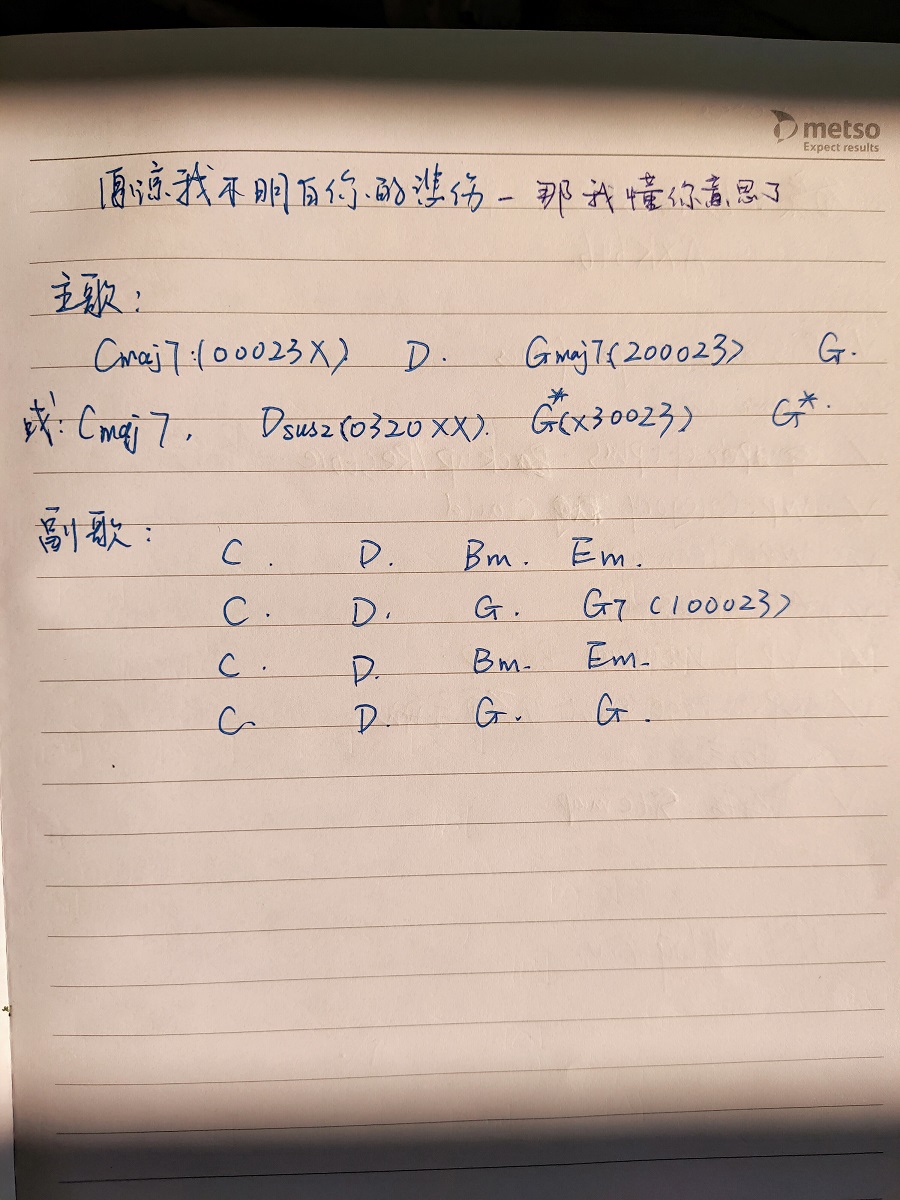 metso
Expect results
原谅我不明白你的悲伤 - 那我懂你意思了
主歌:
Cmaj7:(00023X) D. Gmaj7(200023) G.
或: Cmaj7, Dsus2(0320XX). G*(X30023) G*.
副歌:
C. D. Bm. Em.
C. D. G. G7 (100023)
C. D. Bm. Em.
C. D. G. G.